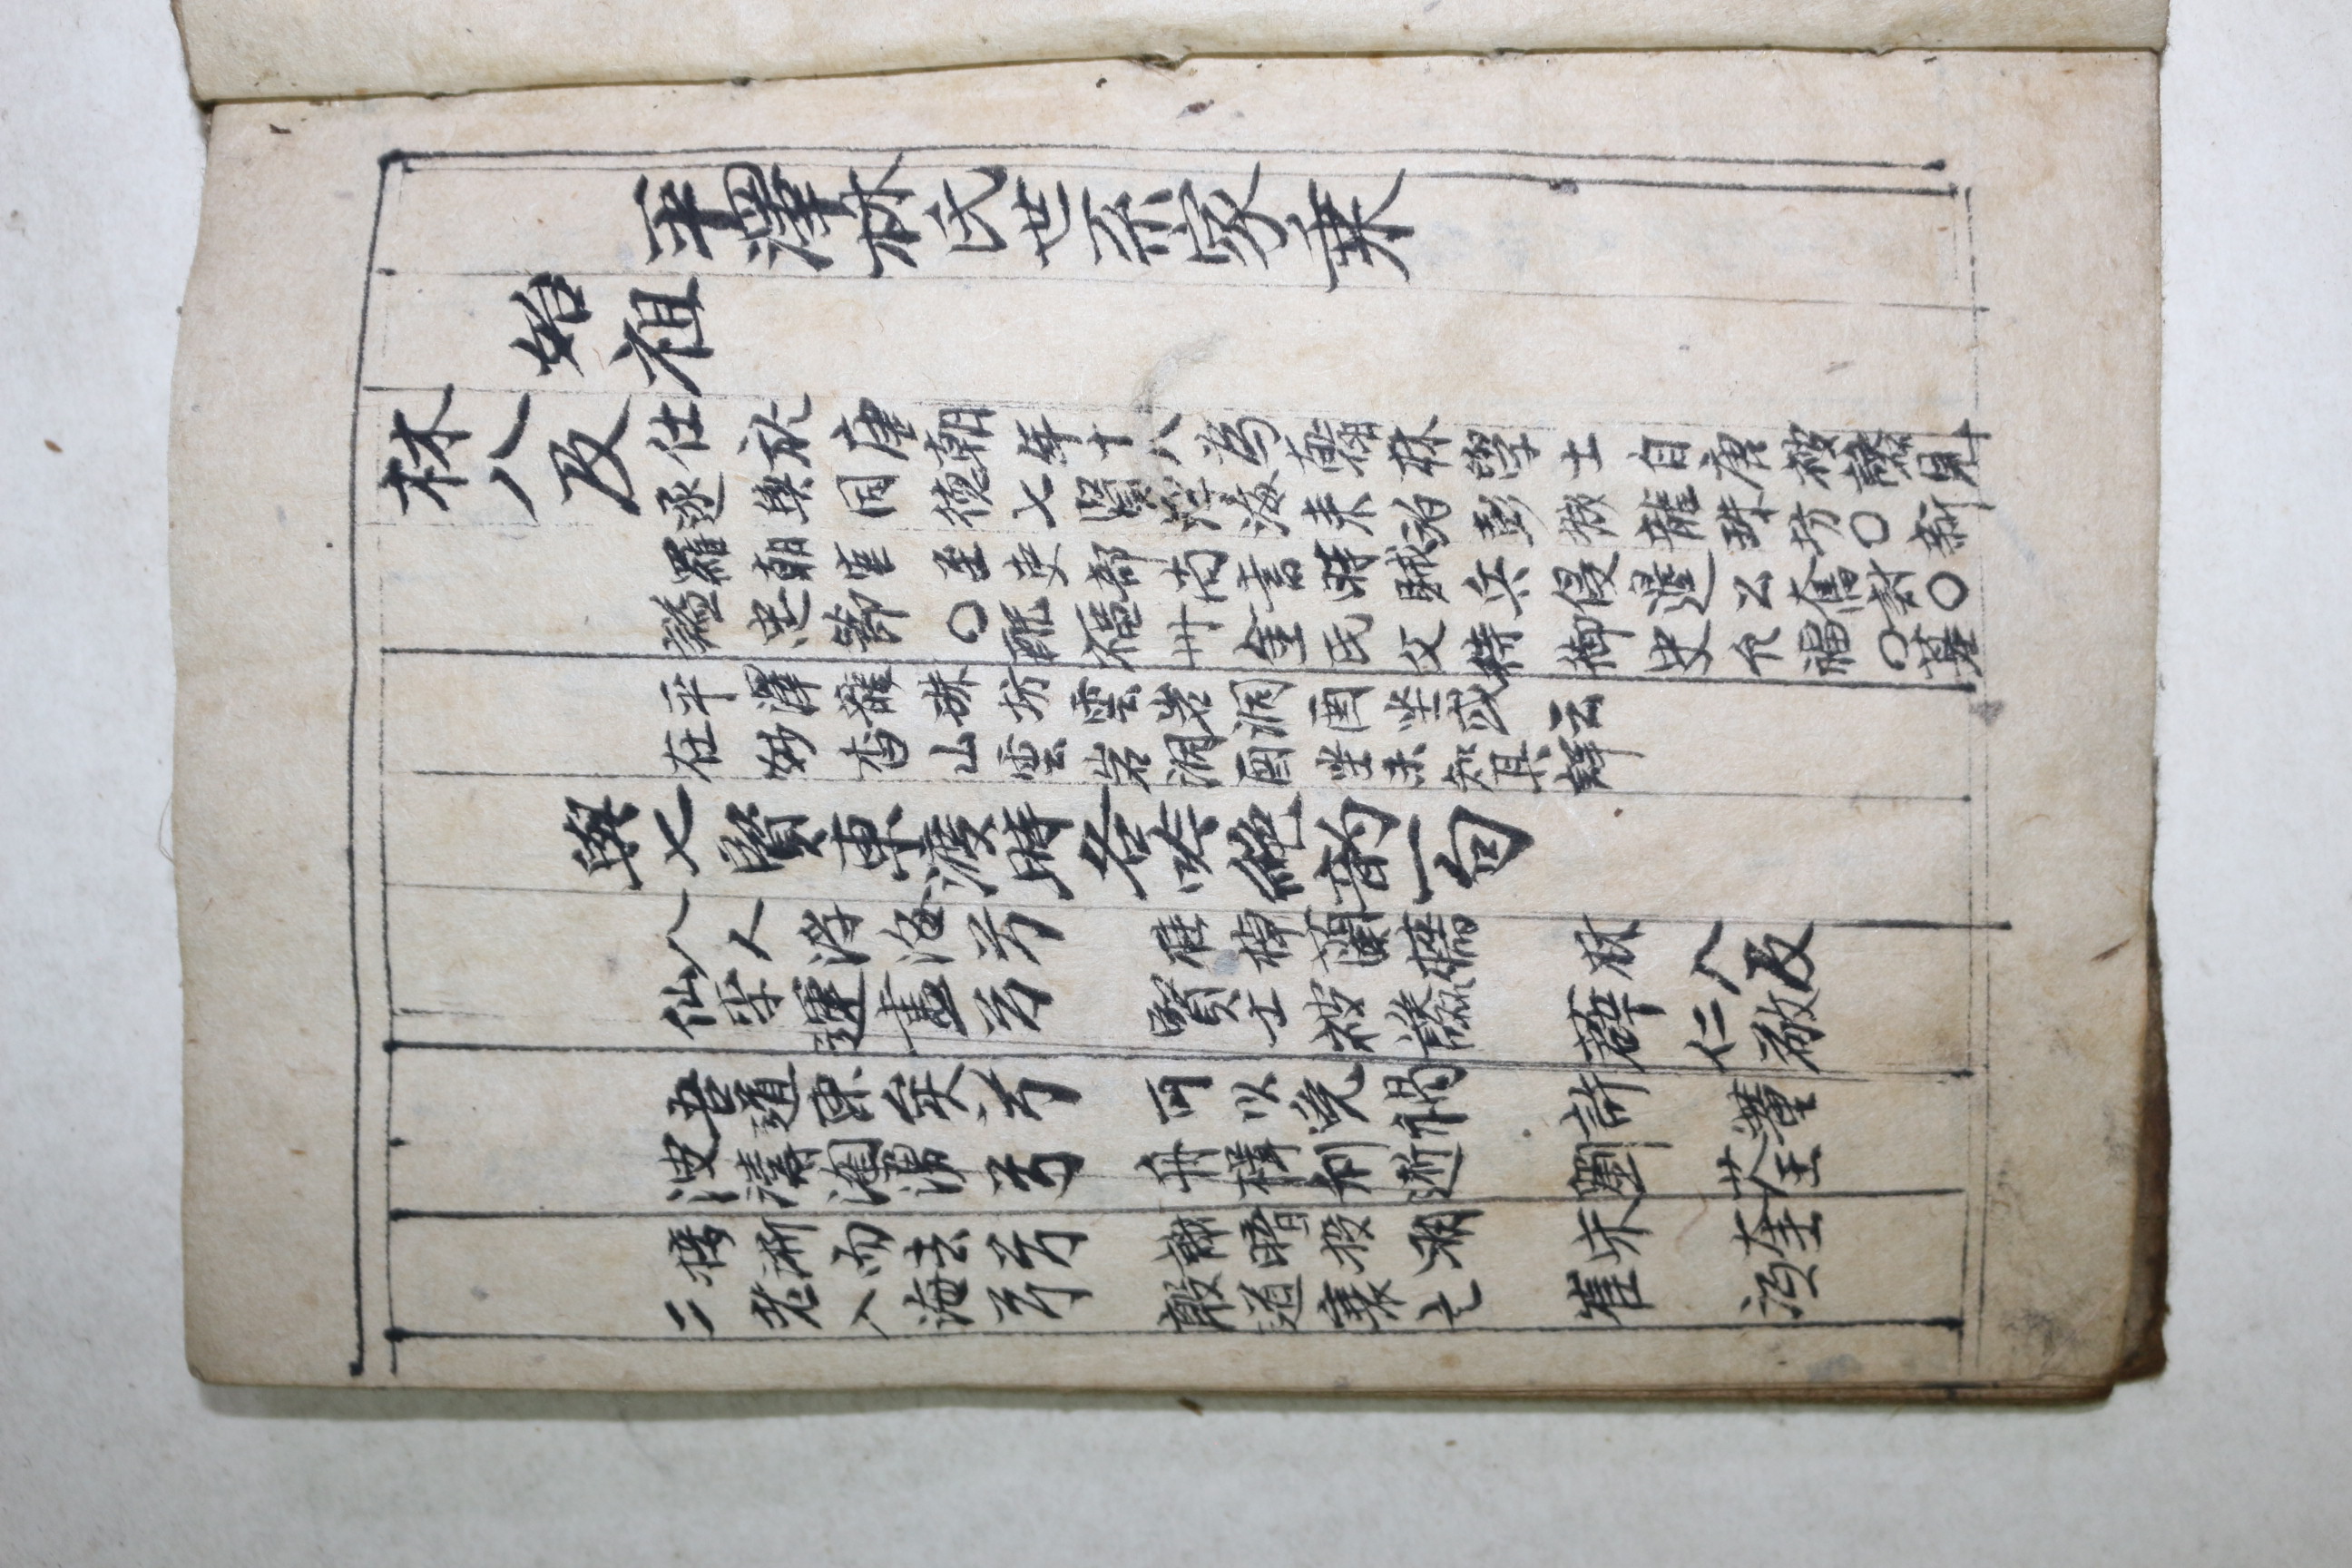 平澤林氏世系家乗
始祖
林八及
仕於唐朝年十八為翰林學士自唐被讒見
逐與同德七賢浮海来泊彭城龍珠坊〇新
羅朝官至吏部尚書時賊兵侵邊公奮討〇
謚忠節〇配福州金氏父待御史允福〇墓
平澤龍珠坊雲岩洞酉坐或云
在妙香山雲岩洞酉坐未知具詳
與七賢東渡時各吟絶韵一句
八人浮海兮 桂棹蘭檣 林八及
仙李運盡兮 賢士被讒 薛仁敬
吾道東矣兮 可以免禍 許董
波濤洶湧兮 舟楫利逝 劉荃
接淅而去兮 辭暗投明 宋奎
二老入海兮 殷道衰亡 崔沍